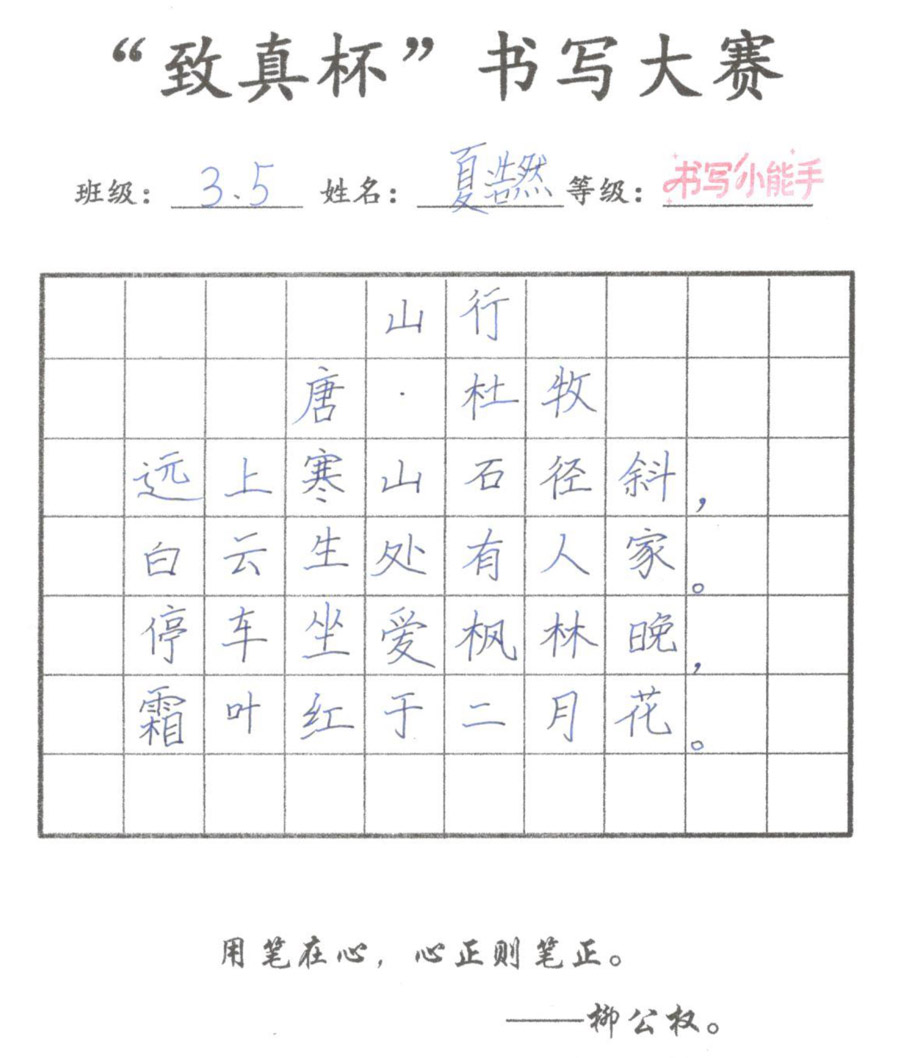 “致真杯”书写大赛
班级：3.5 姓名：夏浩然 等级：书写小能手
山行
唐·杜牧
远上寒山石径斜，
白云生处有人家。
停车坐爱枫林晚，
霜叶红于二月花。
用笔在心，心正则笔正。
——柳公权。